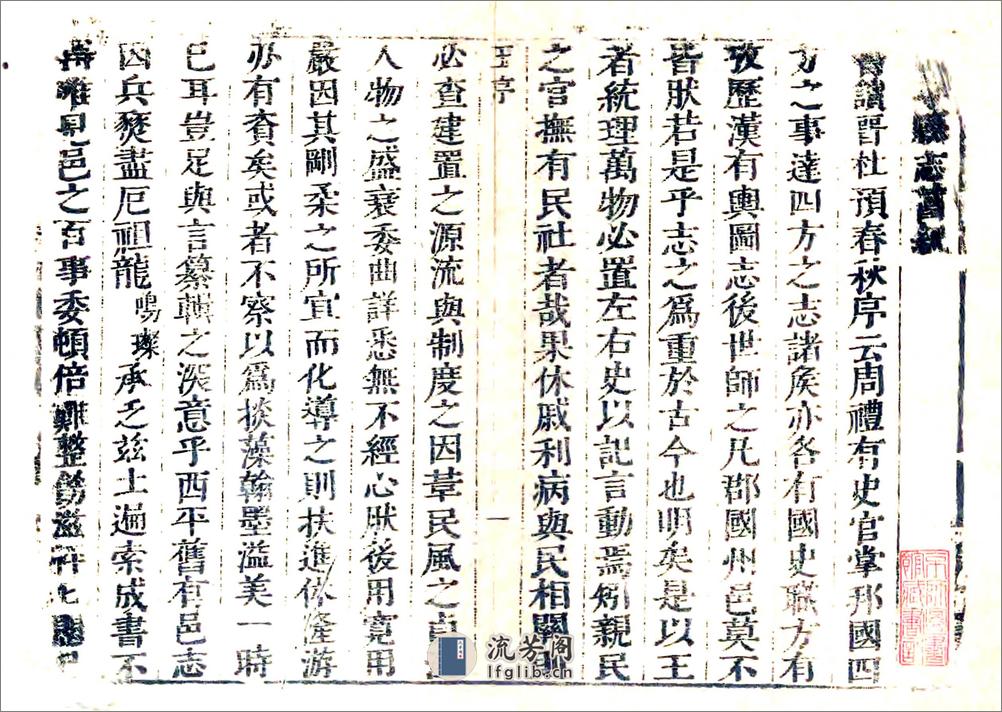 志舊叙
嘗讀晋杜預春秋序云周禮有史官掌邦國四
方之事達四方之志諸矦亦各有國史職方有
攷歷漢有輿圖志後世師之凡郡國州邑莫不
皆狀若是乎志之爲重於古今也明矣是以王
者統理萬物必置左右史以記言動焉矧親民
之官撫有民社者哉果休戚利病與民相關
王序
一
必查建置之源流與制度之因革民風之
人物之盛衰委曲詳悉無不經心狀後用寬用
嚴因其剛柔之所宜而化導之則扶進休隆游
亦有賴矣或者不察以爲掞藻翰墨溢美一時
已耳豈足與言纂輯之深意乎西平舊有邑志
因兵燹盡厄祖龍鳴璨承乏茲土遍索成書不
再唯見邑之百事委頓倍難整飭滋
流芳阁
lfglib.cn